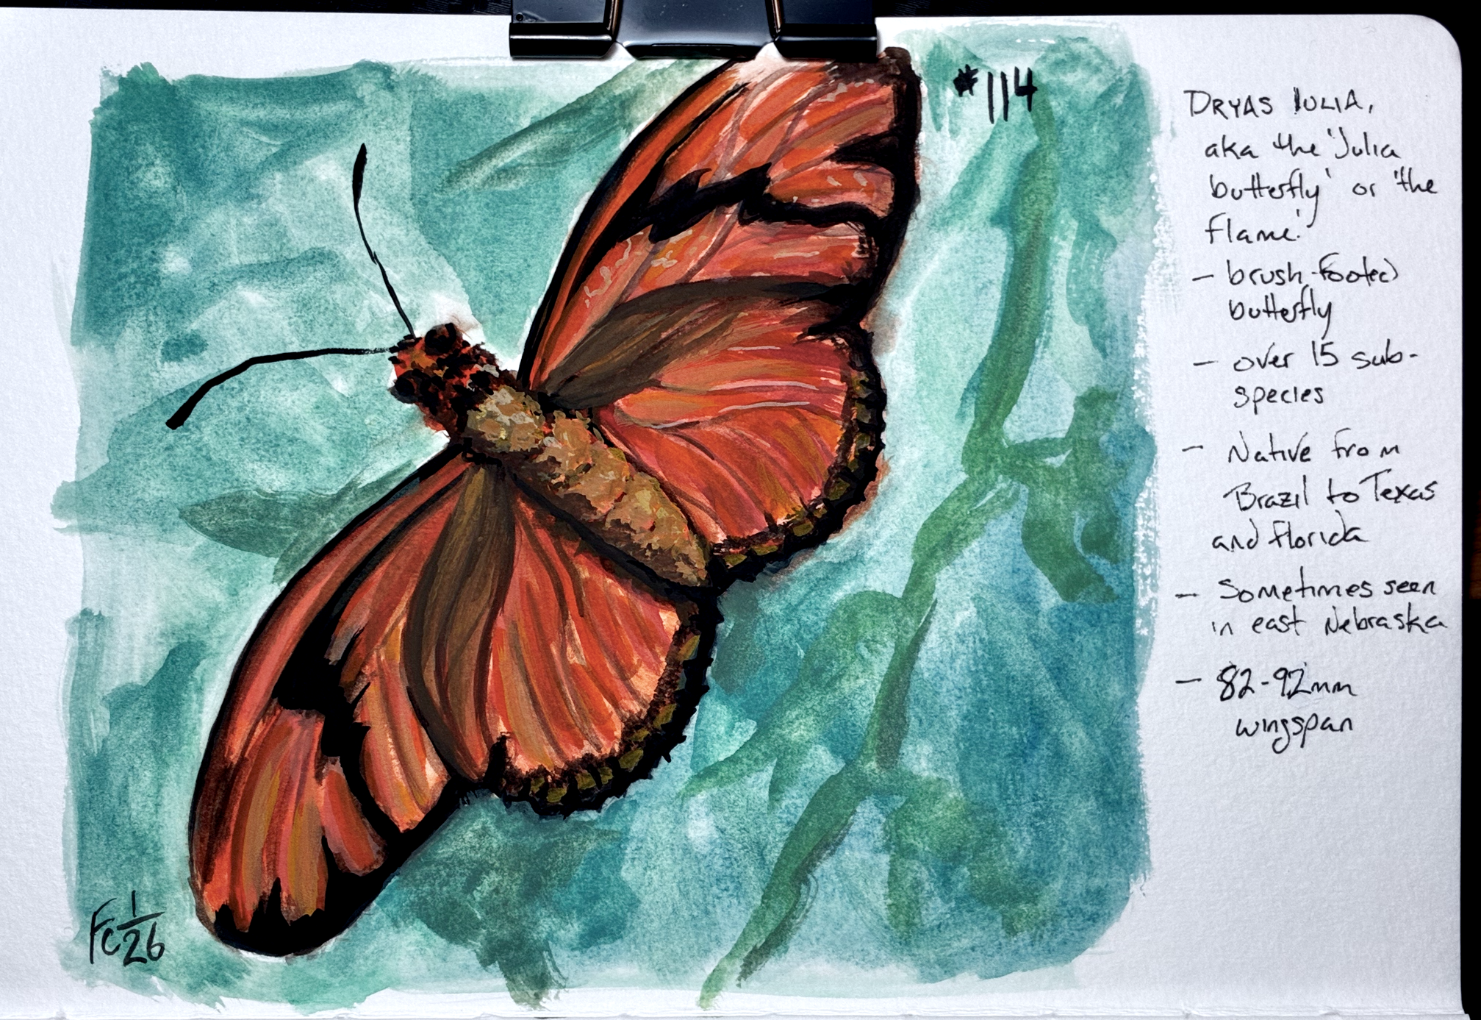 #114
DRYAS IULIA,
aka the 'Julia
butterfly' or 'the
flame.'
- brush-footed
butterfly
- over 15 sub-
species
- Native from
Brazil to Texas
and Florida
- Sometimes seen
in east Nebraska
- 82-92mm
wingspan
FC 1/26